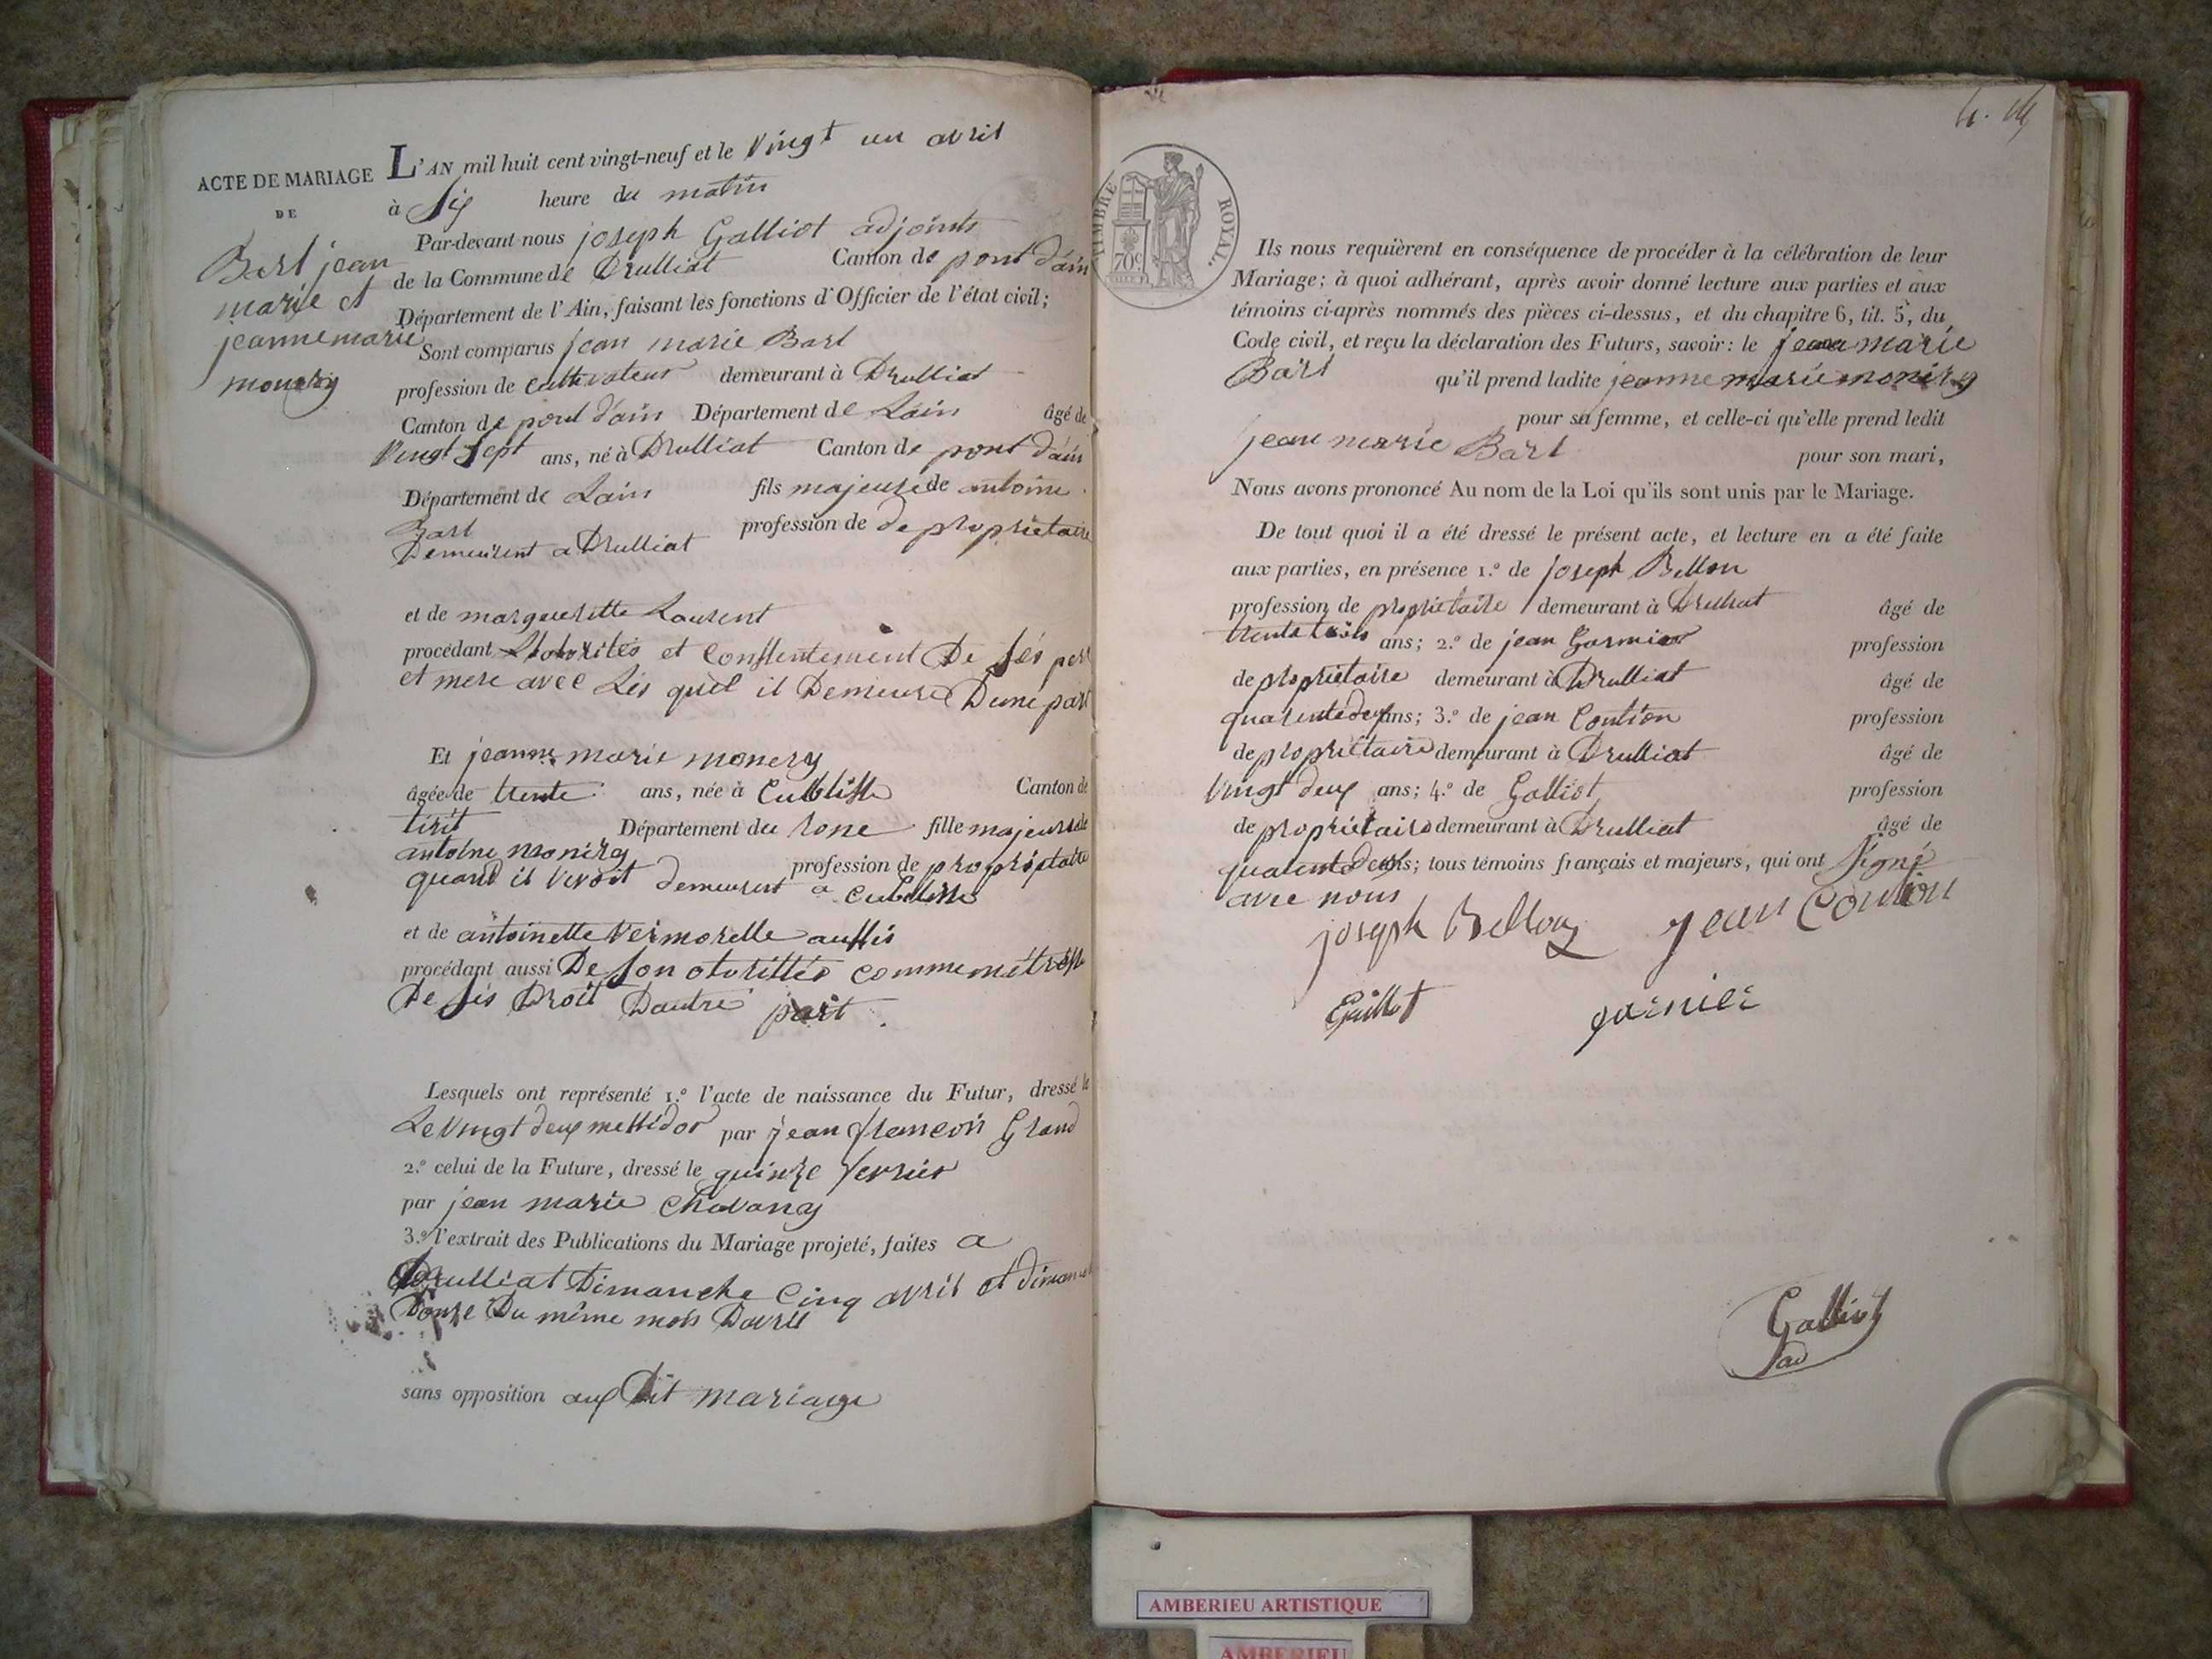 ACTE DE MARIAGE
DE
Bart jean
marie et
jeanne marie
monery
L'AN mil huit cent vingt-neuf et le Vingt un avril
à Six heure du matin
Par-devant nous joseph Galliot adjoints
de la Commune de Drulliat Canton de pont d'ain
Département de l'Ain, faisant les fonctions d'Officier de l'état civil;
Sont comparus jean marie Bart
profession de cultivateur demeurant à Drulliat
Canton de pont d'ain Département de Lain âgé de
Vingt Sept ans, né à Drulliat Canton de pont d'ain
Département de Lain fils majeure de antoine
Bart profession de de propriétaire
Demeurent a Drulliat
et de margueritte Laurent
procédant et Conssentement De Ses pere
et mere avec Les quel il Demeure Dune part
Et jeanne marie monery
âgée de trente ans, née à Cublisse Canton de
tirit Département du rone fille majeure de
antoine monery profession de propriétaire
quand il vivoit demeurent a Cublisse
et de antoinette Vermorelle aussis
procédant aussi De Son otorittés comme métresse
De Ses Droit Dautre part.
Lesquels ont représenté 1.º l'acte de naissance du Futur, dressé le
Le Vingt deux messidor par jean francois Grand
2.º celui de la Future, dressé le quinze fevrier
par jean marie Chavany
3.º l'extrait des Publications du Mariage projeté, faites a
Drulliat Dimanche Cinq avril et dimanche
Douze Du même mois Davril
sans opposition aux Dit mariage
TIMBRE ROYAL.
70c
Ils nous requièrent en conséquence de procéder à la célébration de leur
Mariage; à quoi adhérant, après avoir donné lecture aux parties et aux
témoins ci-après nommés des pièces ci-dessus, et du chapitre 6, tit. 5, du
Code civil, et reçu la déclaration des Futurs, savoir: le jean marie
Bart qu'il prend ladite jeanne marie monery
pour sa femme, et celle-ci qu'elle prend ledit
jean marie Bart pour son mari,
Nous avons prononcé Au nom de la Loi qu'ils sont unis par le Mariage.
De tout quoi il a été dressé le présent acte, et lecture en a été faite
aux parties, en présence 1.º de joseph Bellon
profession de propriétaire demeurant à Drulliat âgé de
trente trois ans; 2.º de jean Garnier profession
de propriétaire demeurant à Drulliat âgé de
quarente deux ans; 3.º de jean Contion profession
de propriétaire demeurant à Drulliat âgé de
Vingt deux ans; 4.º de Galliot profession
de propriétaire demeurant à Drulliat âgé de
quarente deux ans; tous témoins français et majeurs, qui ont Signé
avec nous
joseph Bellon jean Contion
Gaillot garnier
Galliot
ad
AMBERIEU ARTISTIQUE
AMBERIEU